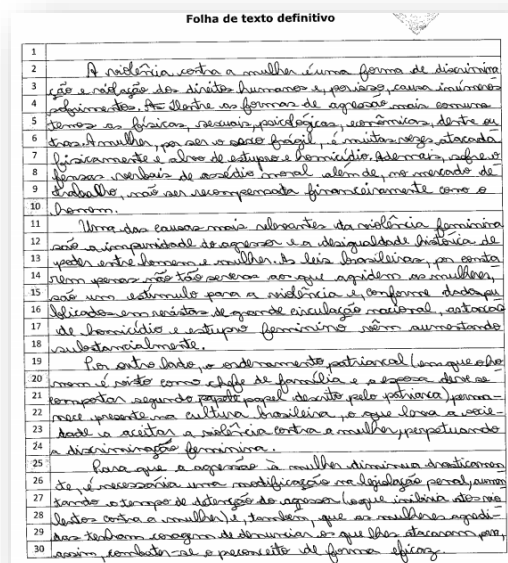 Folha de texto definitivo
1
2 A violência contra a mulher é uma forma de discrimina
3 ção e violação dos direitos humanos e, por isso, causa inúmeros
4 sofrimentos. Dentre as formas de agressão mais comuns
5 temos as físicas, sexuais, psicológicas, econômicas, dentre ou
6 tras. A mulher, por ser o sexo frágil, é muitas vezes atacada
7 fisicamente e alvo de estupro e homicídio. Ademais, sofre o
8 fensas verbais de assédio moral alem de, no mercado de
9 trabalho, não ser recompensada financeiramente como o
10 homem.
11 Uma das causas mais relevantes da violência feminina
12 são a impunidade do agressor e a desigualdade histórica de
13 poder entre homens e mulher. As leis brasileiras, por consta
14 rem penas não tão severas aos que agridem as mulheres,
15 são um estímulo para a violência e, conforme dados pu
16 blicados em revistas de grande circulação nacional, as taxas
17 de homicídio e estupro feminino vêm aumentando
18 substancialmente.
19 Por outro lado, o ordenamento patriarcal (em que o ho
20 mem é visto como chefe de família e a esposa deve se
21 comportar segundo papel descrito pelo patriarca) perma-
22 nece presente na cultura brasileira, o que leva a socie-
23 dade a aceitar a violência contra a mulher, perpetuando
24 a discriminação feminina.
25 Para que a agressão à mulher diminua drasticamen
26 te, é necessária uma modificação na legislação penal, aumen
27 tando o tempo de detenção do agressor (o que inibiria atos vio
28 lentos contra a mulher) e, também, que as mulheres agredi
29 das tenham coragem de denunciar os que lhes atacaram para,
30 assim, combater-se o preconceito de forma eficaz.